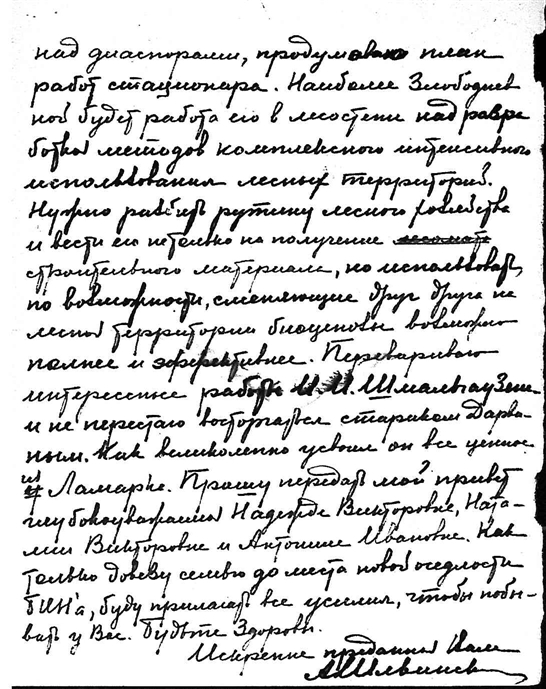 над диаспорами, продумываю план
работ стационара. Наиболее Злободнев
ной будет работа его в лесостепи над разра
боткой методов комплексного интенсивного
использования лесных территорий.
Нужно разбить рутину лесного хозяйства
и вести его не только на получение
строительного материала, но использовать,
по возможности, сменяющие друг друга на
лесной территории биоценозы возможно
полнее и эффективнее. Перевариваю
интересные работы И. И. Шмальгаузена
и не перестаю восторгаться стариком Дарви-
ным. Как великолепно усвоил он все ценное
из Ламарка. Прошу передать мой привет
глубокоуважаемой Надежде Викторовне, Ната-
лии Викторовне и Антонине Ивановне. Как
только довезу семью до места новой оседлости
БИН'а, буду прилагать все усилия, чтобы побы-
вать у Вас. Будьте Здоровы.
Искренне преданный Вам